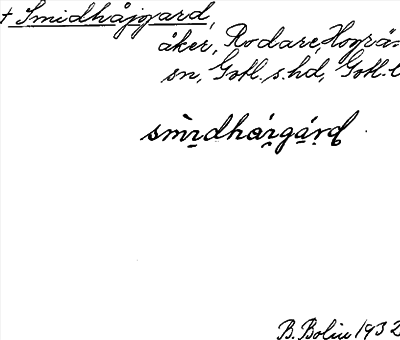 † Smidhåjgard,
åker, Rodare, Hogrä
sn, Gotl. s. hd, Gotl. l
smìdhái̯gárd
B. Bolin 1932